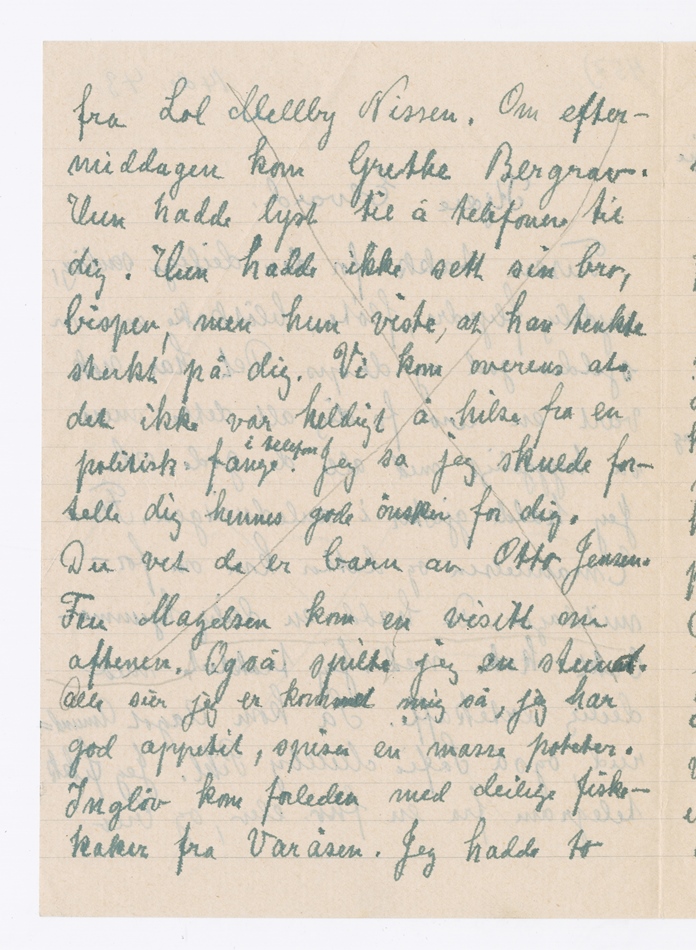 fra Lol Mellby Nissen. Om efter-
middagen kom Grethe Bergrav.
Hun hadde lyst til å telefonere til
dig. Hun hadde ikke sett sin bror,
bispen, men hun viste, at han tenkte
sterkt på dig. Vi kom overens at
det ikke var heldigt å hilse fra en
politisk fange i telefon. Jeg sa jeg skulde for-
telle dig hennes gode ønsker for dig.
Du vet de er barn av Otto Jensen.
Fru Magelsen kom en visitt om
aftenen. Også spilte jeg en stund.
Alle sier jeg er kommet mig så, jeg har
god appetit, spiser en masse poteter.
Ingløv kom forleden med deilige fiske-
kaker fra Varåsen. Jeg hadde to